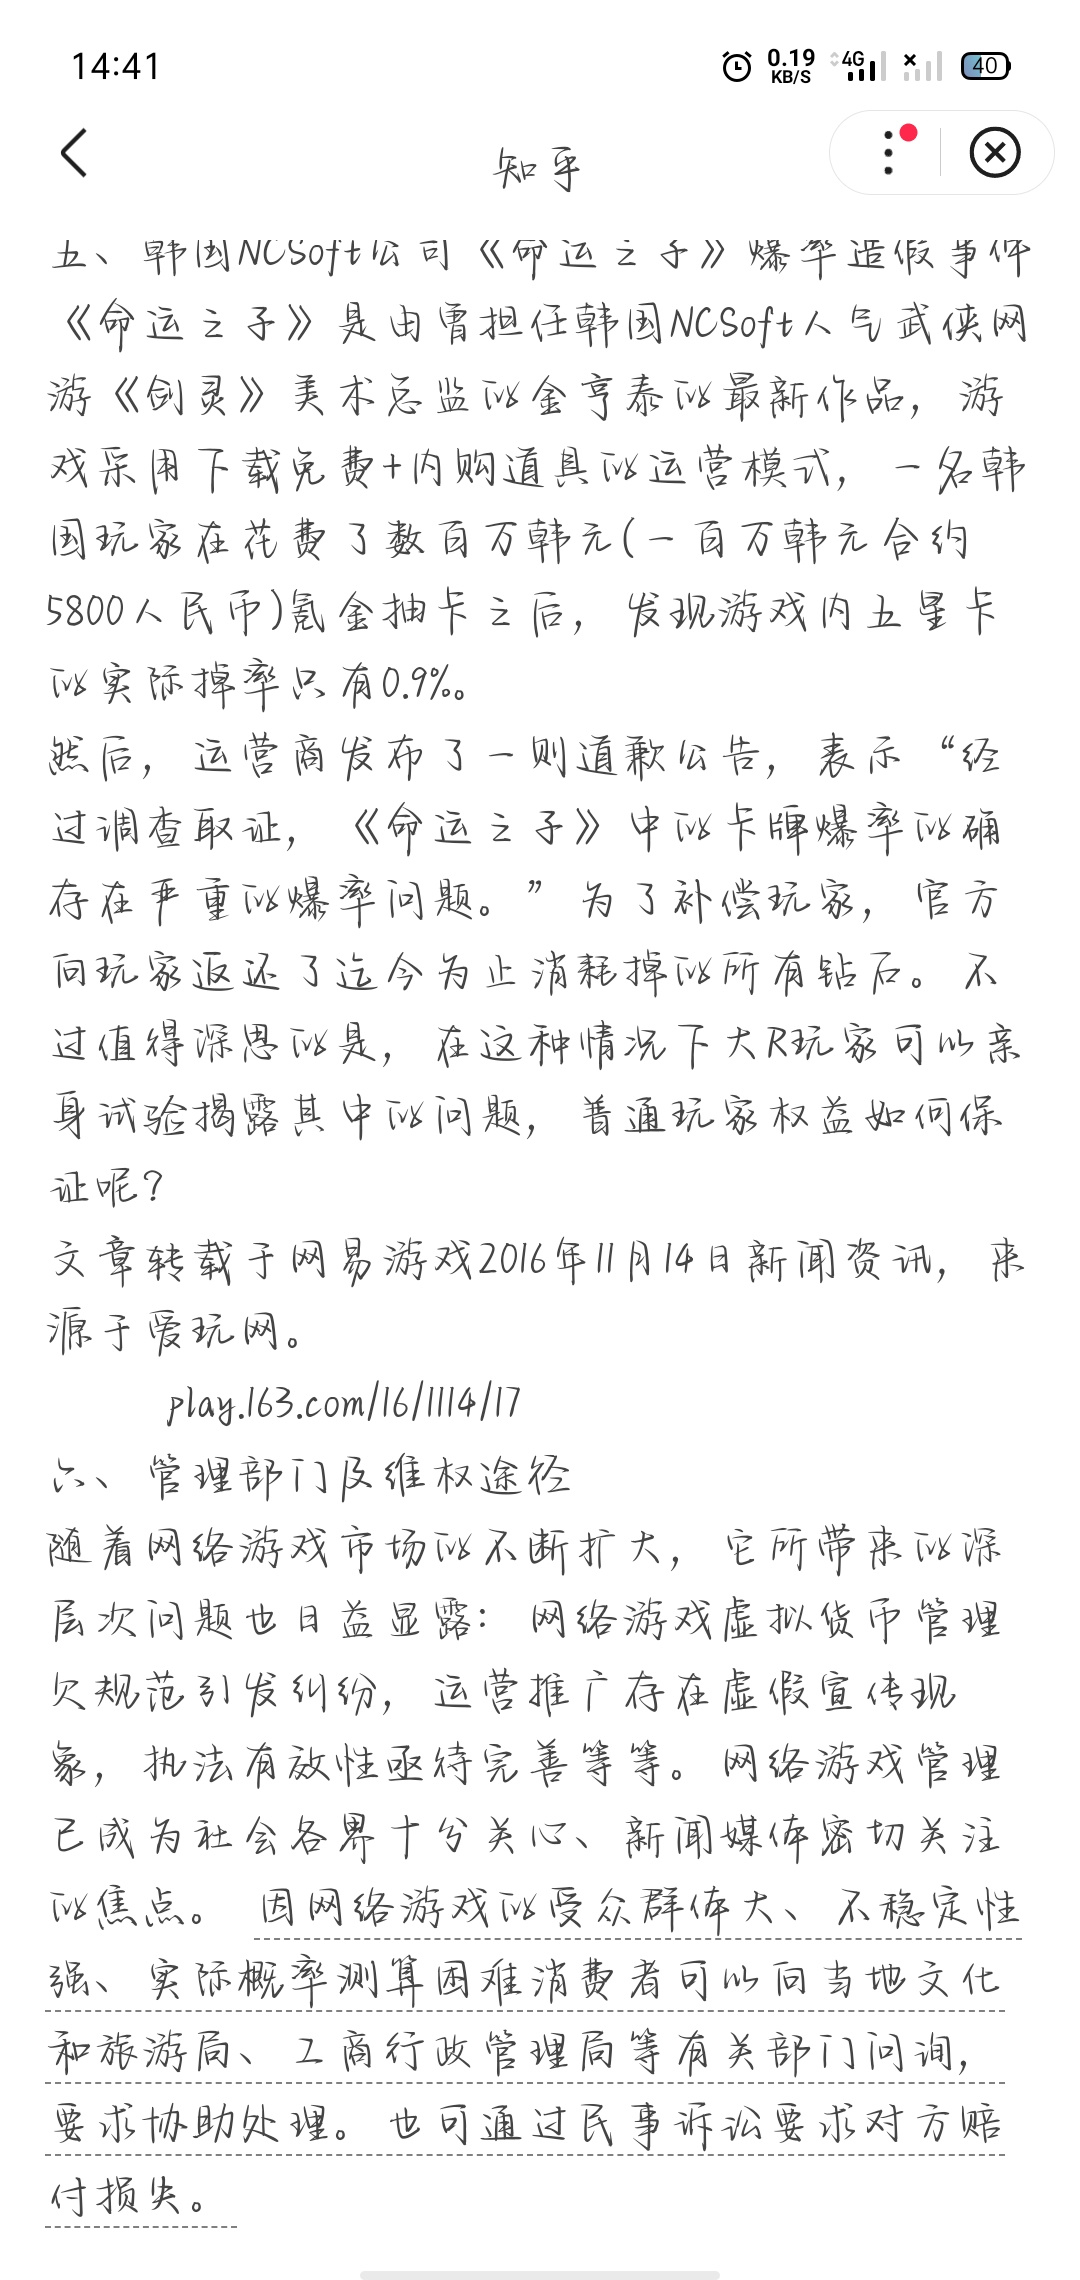 14:41
0.19
KB/S
4G
40
知乎
五、韩国NCSoft公司《命运之子》爆率造假事件
《命运之子》是由曾担任韩国NCSoft人气武侠网
游《剑灵》美术总监的金亨泰的最新作品，游
戏采用下载免费+内购道具的运营模式，一名韩
国玩家在花费了数百万韩元(一百万韩元合约
5800人民币)氪金抽卡之后，发现游戏内五星卡
的实际掉率只有0.9%。
然后，运营商发布了一则道歉公告，表示“经
过调查取证，《命运之子》中的卡牌爆率的确
存在严重的爆率问题。”为了补偿玩家，官方
向玩家返还了迄今为止消耗掉的所有钻石。不
过值得深思的是，在这种情况下大R玩家可以亲
身试验揭露其中的问题，普通玩家权益如何保
证呢？
文章转载于网易游戏2016年11月14日新闻资讯，来
源于爱玩网。
play.163.com/16/1114/17
六、管理部门及维权途径
随着网络游戏市场的不断扩大，它所带来的深
层次问题也日益显露：网络游戏虚拟货币管理
欠规范引发纠纷，运营推广存在虚假宣传现
象，执法有效性亟待完善等等。网络游戏管理
已成为社会各界十分关心、新闻媒体密切关注
的焦点。因网络游戏的受众群体大、不稳定性
强、实际概率测算困难消费者可以向当地文化
和旅游局、工商行政管理局等有关部门问询，
要求协助处理。也可通过民事诉讼要求对方赔
付损失。